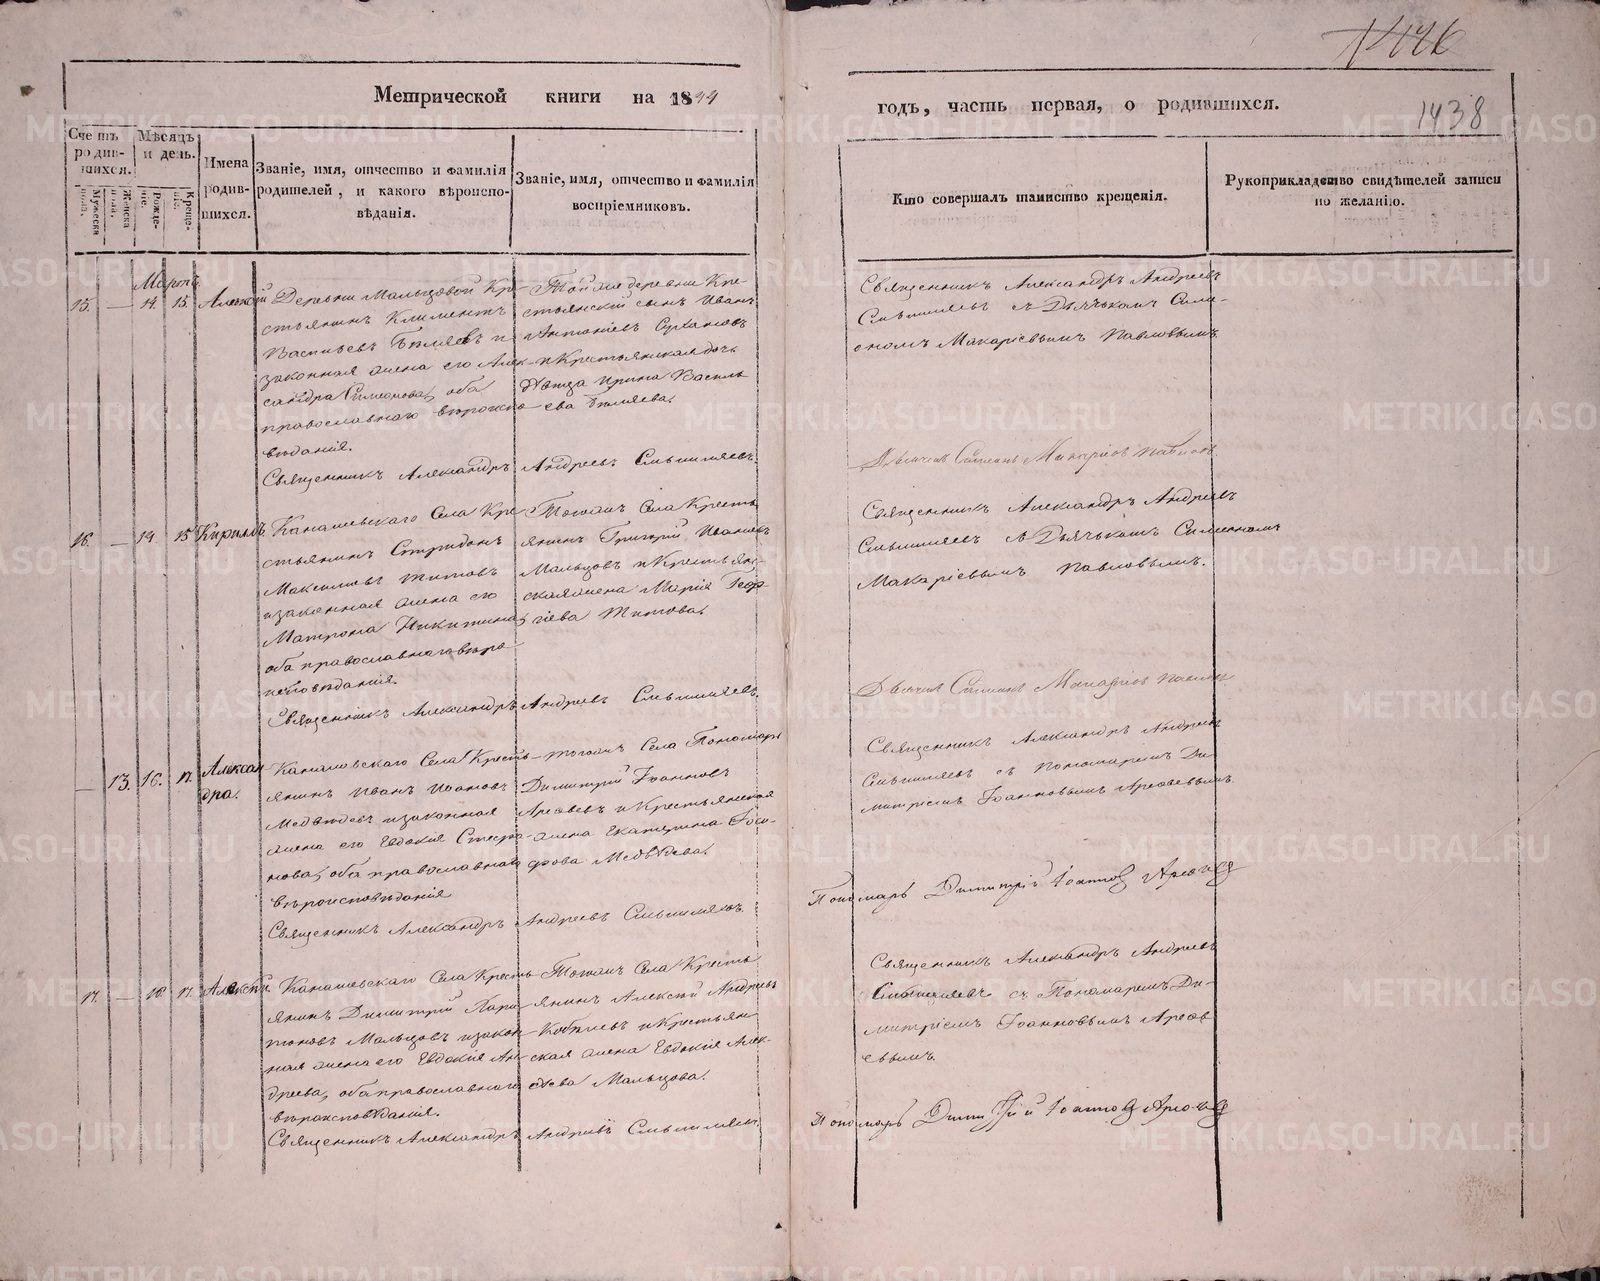 1446
Метрической книги на 1844
годъ, часть первая, о родившихся.
1438
Счетъ родив-
шихся.
Мужеска пола.
Женска пола.
Мѣсяцъ и день.
Рожде-
нія.
Креще-
нія.
Имена
родив-
шихся.
Званіе, имя, отчество и фамилія
родителей, и какого вѣроиспо-
вѣданія.
Званіе, имя, отчество и фамилія
воспріемниковъ.
Кто совершалъ таинство крещенія.
Рукоприкладство свидѣтелей записи
по желанію.
Мартъ
15. — 14. 15. Алексій
Деревни Мальцовой Кре-
стьянинъ Климентъ
Васильевъ Бѣляевъ и
законная жена его Алек-
сандра Симеонова, оба
православнаго вѣроиспо-
вѣданія.
Той же деревни Кре-
стьянскій сынъ Иванъ
Антоніевъ
и Крестьянская дочь
дѣвица Ирина Василь-
ева Бѣляева.
Священникъ Александръ Андреевъ
Священникъ Александръ Андреевъ
съ Дьячкомъ Симе-
ономъ Макаріевымъ Павловымъ.
Дьячекъ Симеонъ Макаріевъ Павловъ
16. — 14. 15 Кириллъ.
Канашевскаго Села Кре-
стьянинъ Спиридонъ
Максимовъ Титовъ
и законная жена его
Матрона Никитина,
оба православнаго вѣро-
исповѣданія.
Тогожъ Села Кресть-
янинъ Григорій Ивановъ
Мальцовъ и Крестьян-
ская жена Марія Геор-
гіева Титова.
Священникъ Александръ Андреевъ
Священникъ Александръ Андреевъ
съ Дьячкомъ Симеономъ
Макаріевымъ Павловымъ.
Дьячекъ Симеонъ Макаріевъ Павловъ
— 13. 16. 17. Алексан-
дра.
Канашевскаго Села Кресть-
янинъ Иванъ Ивановъ
Медвѣдевъ и законная
жена его Евдокія Степа-
нова, оба православнаго
вѣроисповѣданія
Тогожъ Села Пономарь
Димитрій Іоанновъ
Арефьевъ и Крестьянская
жена Екатерина
Медвѣдева.
Священникъ Александръ Андреевъ
Священникъ Александръ Андреевъ
съ Пономаремъ Ди-
митріемъ Іоанновымъ Арефьевымъ.
Пономарь Димитрій Іоанновъ Арефьевъ
17. — 16. 17. Алексѣй.
Канашевскаго Села Кресть-
янинъ Димитрій Хари-
тоновъ Мальцовъ и закон-
ная жена его Евдокія Ан-
дреева, оба православнаго
вѣроисповѣданія.
Тогожъ Села Кресть-
янинъ Алексѣй Андреевъ
и Крестьян-
ская жена Евдокія Алек-
сѣева Мальцова.
Священникъ Александръ Андреевъ
Священникъ Александръ Андреевъ
съ Пономаремъ Ди-
митріемъ Іоанновымъ Арефь-
евымъ.
Пономарь Димитрій Іоанновъ Арефьевъ
METRIKI.GASO-URAL.RU